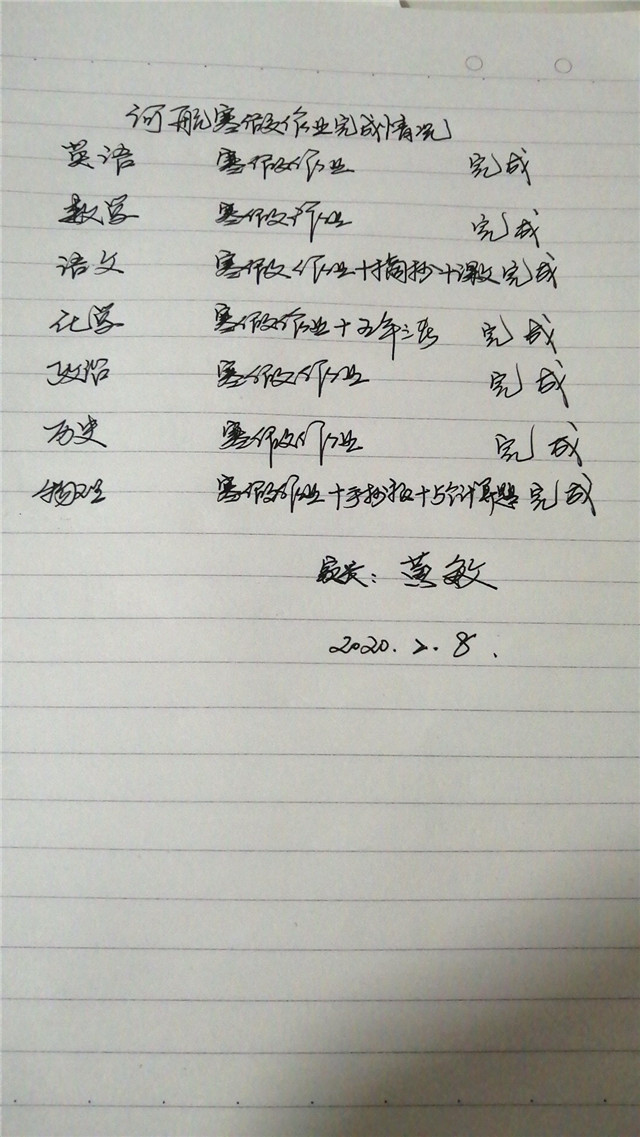 河航寒假作业完成情况
英语 寒假作业 完成
数学 寒假作业 完成
语文 寒假作业+摘抄+课文 完成
化学 寒假作业+五年三 完成
政治 寒假作业 完成
历史 寒假作业 完成
物理 寒假作业+手抄报+5个计算题 完成
家长:黄敏
2020.2.8.